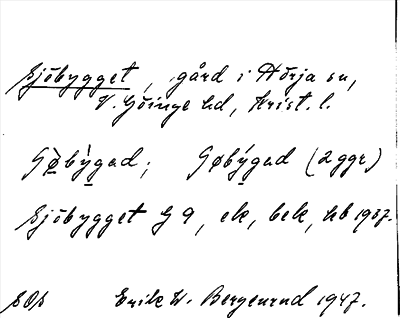 Sjöbygget, gård i Hörja sn,
V. Göinge hd, Krist. l.
Gø̀bỳgad; Gøbýgad (2 ggr)
Sjöbygget G 9, ek, bek, hb 1937.
SOS Erik W. Bergenrud 1947.